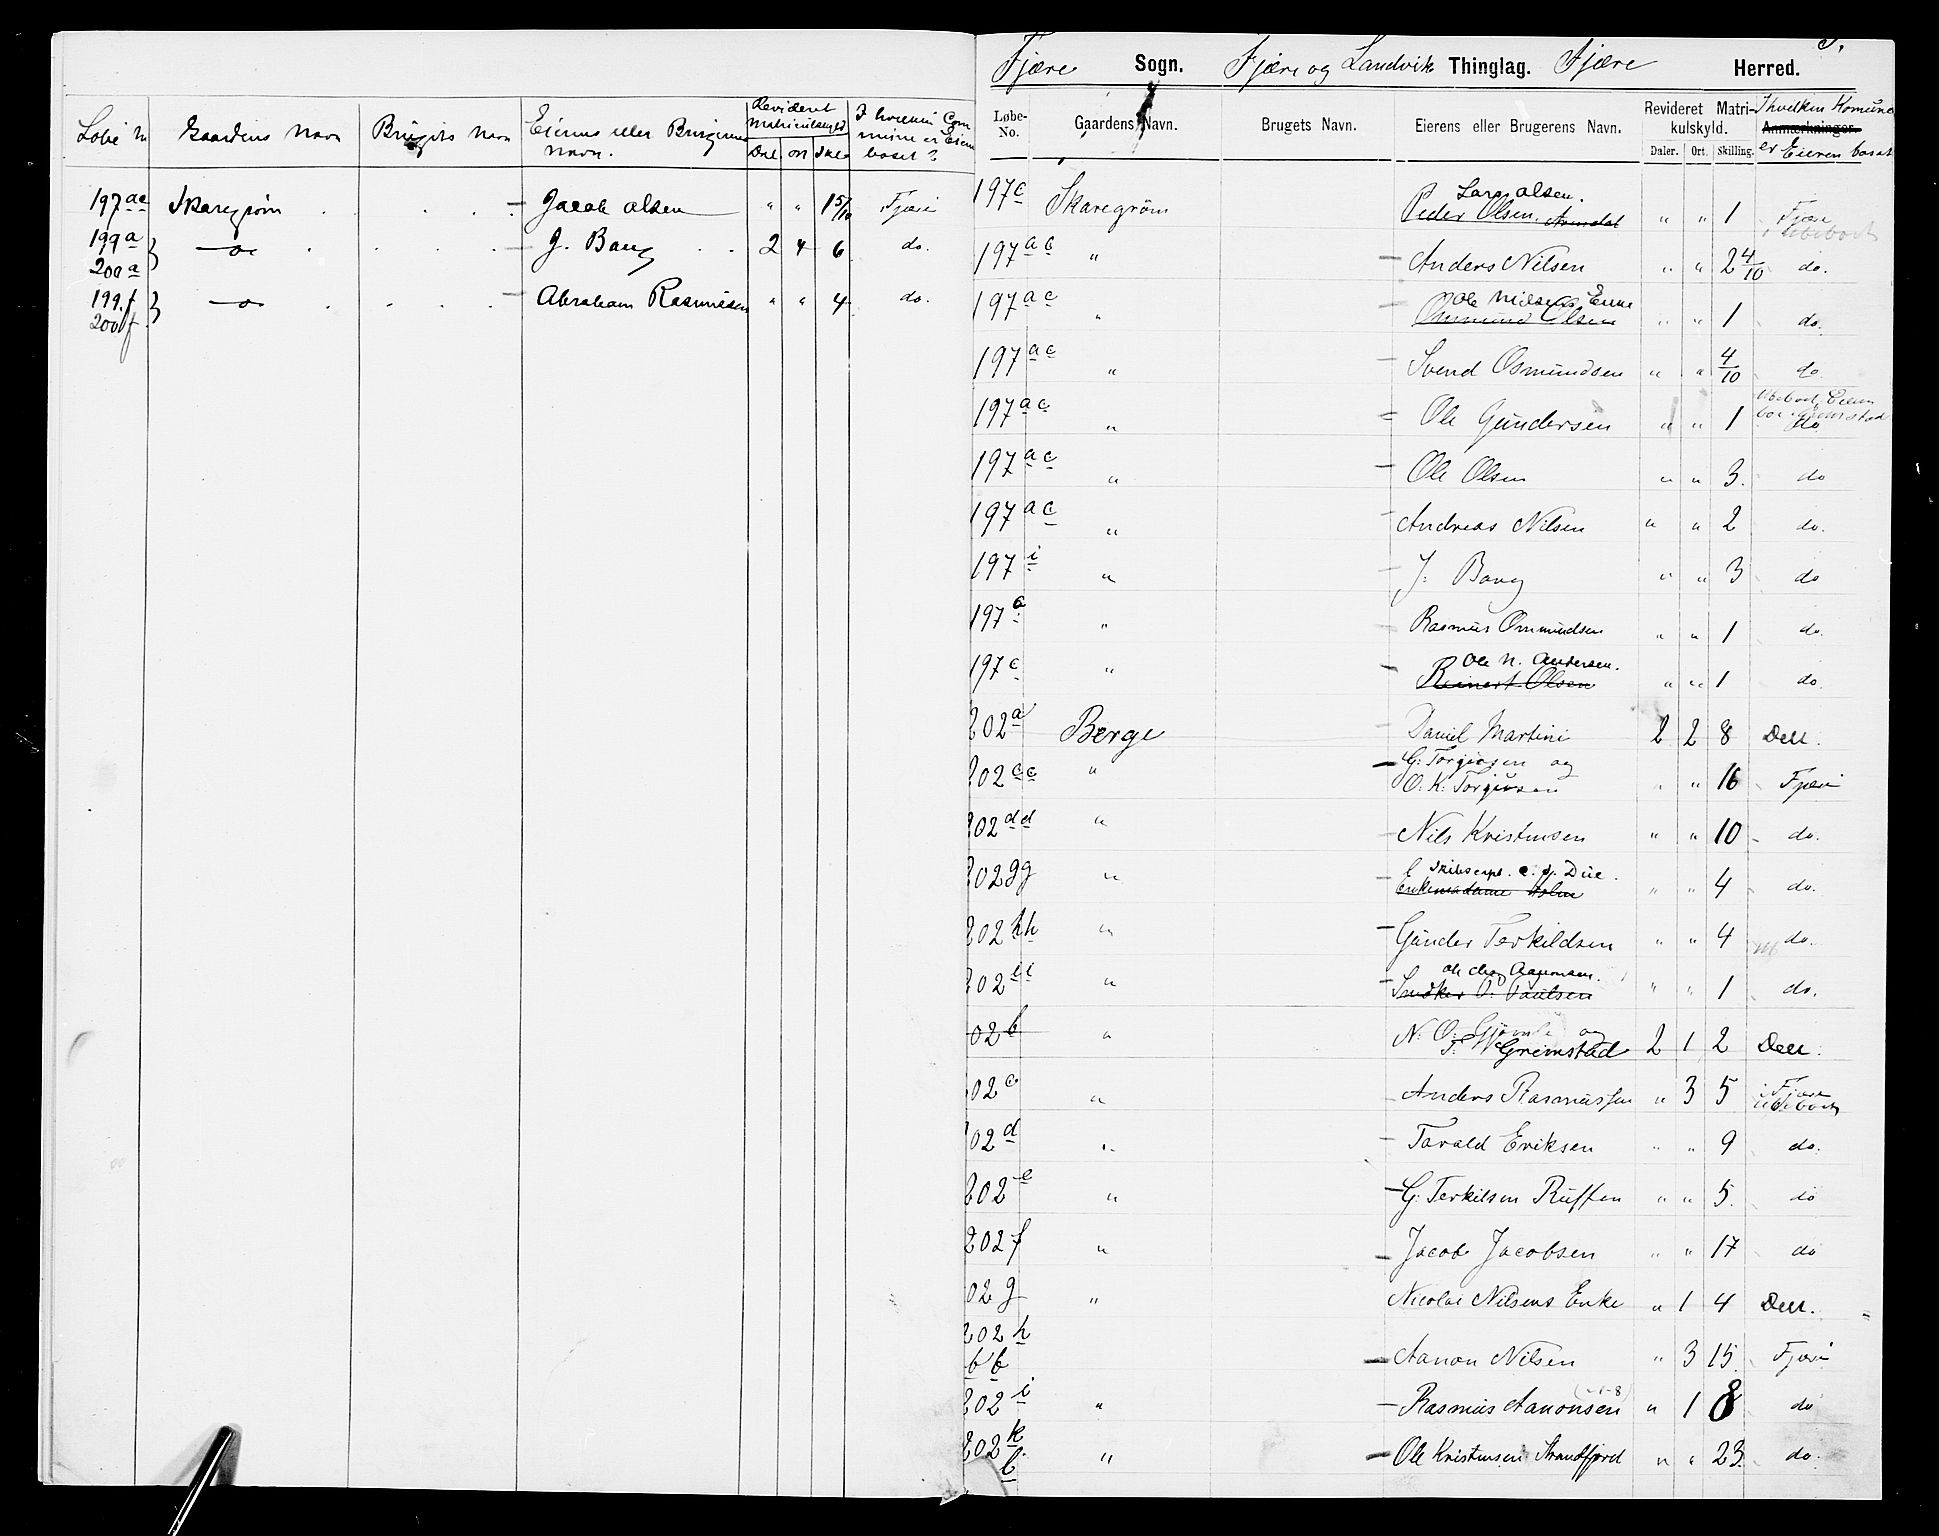 Løbe N Gaardens Navn Brugets Navn Eierens eller Brugerens Navn. Revideret Matriculskyld Dal. Ort Skil. I hvilken Commune er Eieren bosat?
197ac Skaregrøm Jacob Olsen " " 15/10 Fjære
199a 200a —o— J. Bang 2 4 6 do.
199f 200f —o— Abraham Rasmussen " " 4 do.
Fjære Sogn. Fjære og Landvik Thinglag. Fjære Herred.
Løbe-No. Gaardens Navn. Brugets Navn. Eierens eller Brugerens Navn. Revideret Matrikulskyld. Daler. Ort. Skilling. Anmærkninger. I hvilken Komune er Eieren bosat
Lars Olsen.
197c Skaregrøm Peder Olsen, Arendal " " 1 Fjære ubeboet
197ac " Anders Nilsen " " 2 4/10 do.
Ole Nielsens Enke
197ac " Osmund Olsen " " 1 do.
197ac " Svend Osmundsen " " 4/10 do.
197ac " Ole Gundersen " " 1 do
197ac " Ole Olsen " " 3. do
197ac " Andreas Nilsen " " 2 do.
197i " J. Bang " " 3 do
197a " Rasmus Osmundsen " " 1 do.
Ole N. Andersen.
197c " Reinert Olsen " " 1 do.
202a Berge Daniel Martini 2 2 8 Dell.
202cc " G. Torgersen og
O. K. Torgersen " " 16 Fjære
202dd " Nils Kristensen " " 10 do.
Skibscapt.
202gg " Enkemadame Holm " " 4 do.
202hh " Gunder Terkildsen " " 4 do.
202ii " Snedker O. Paulsen " " 1 do.
02b " N. O. og
Grimstad 2 1 2 Dell.
02c " Anders Rasmussen " 3 5 i Fjære ubeboet
02d " Tarald Eriksen " " 9 do.
202e " G. Terkilsen Ruffen " " 5. do
202f " Jacob Jacobsen " " 17 do
02g " Nicolai Nilsens Enke " 1 4 Dell.
202h
bb Aanon Nilsen " 3 15 Fjære
202i " Rasmus Aanonsen " 1 8 do
202k
l " Ole Kristensen Strandfjord " " 23. do.